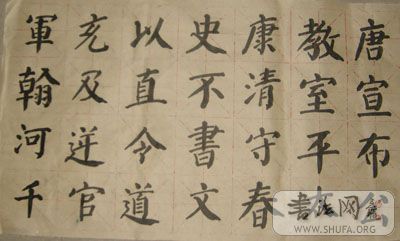 唐宣布
教室平
康清守春
史不書文
以直令道
充及迸官
軍翰河千
书法网
WWW.SHUFA.ORG